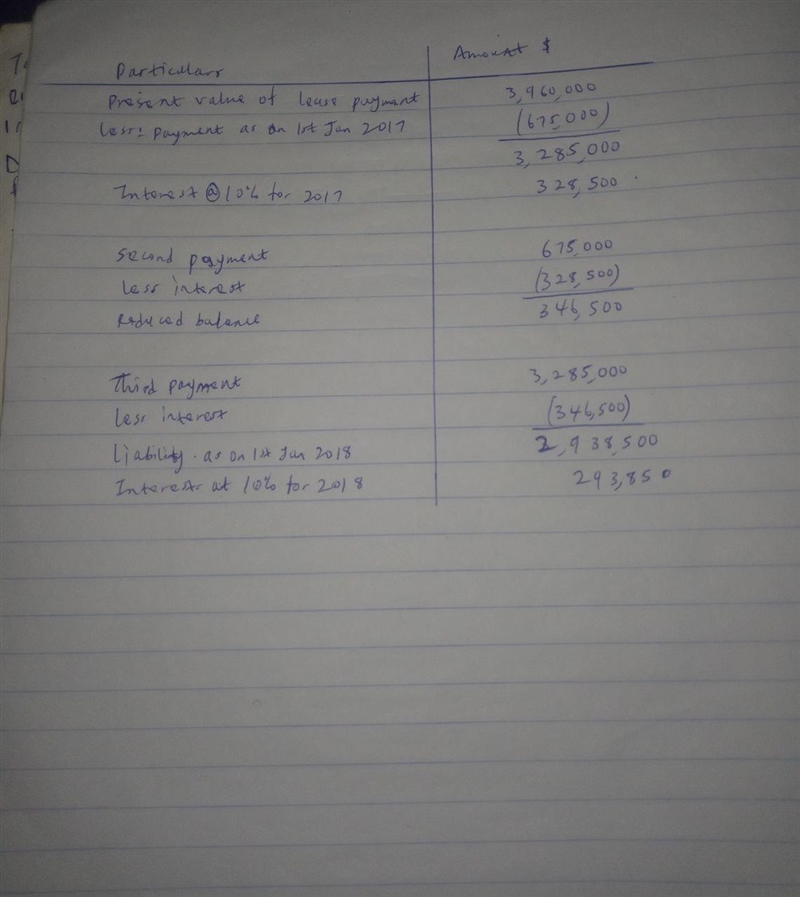 Particulars Amount $
Present value of lease payment 3,960,000
Less: payment as on 1st Jan 2017 (675,000)
3,285,000
Interest @ 10% for 2017 328,500
Second payment 675,000
Less interest (328,500)
Reduced balance 346,500
Third payment 3,285,000
less interest (346,500)
Liability as on 1st Jan 2018 2,938,500
Interest at 10% for 2018 293,850